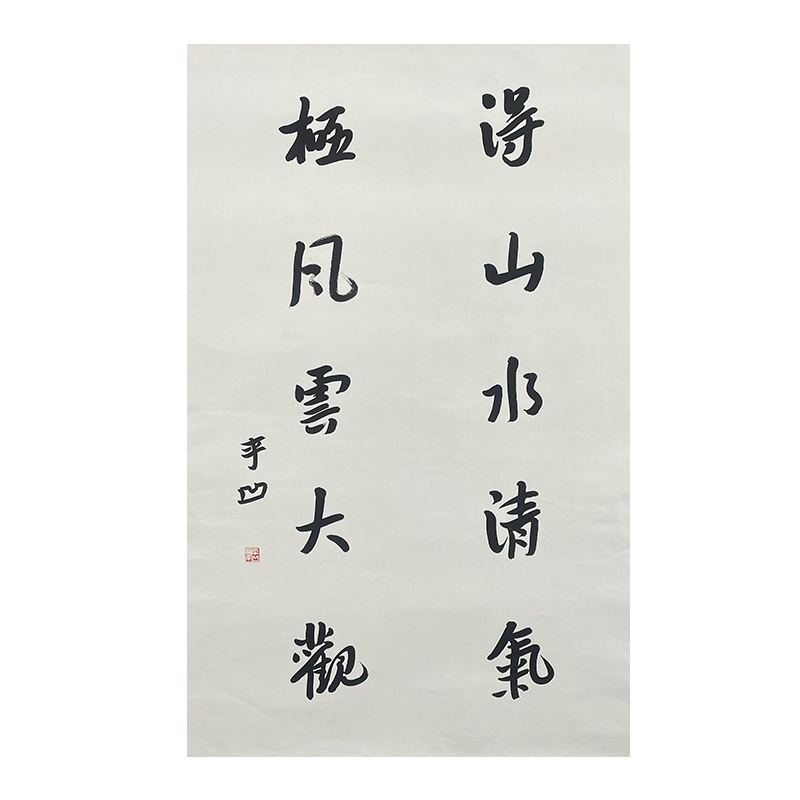 得山水清氣
極風雲大觀
平凹